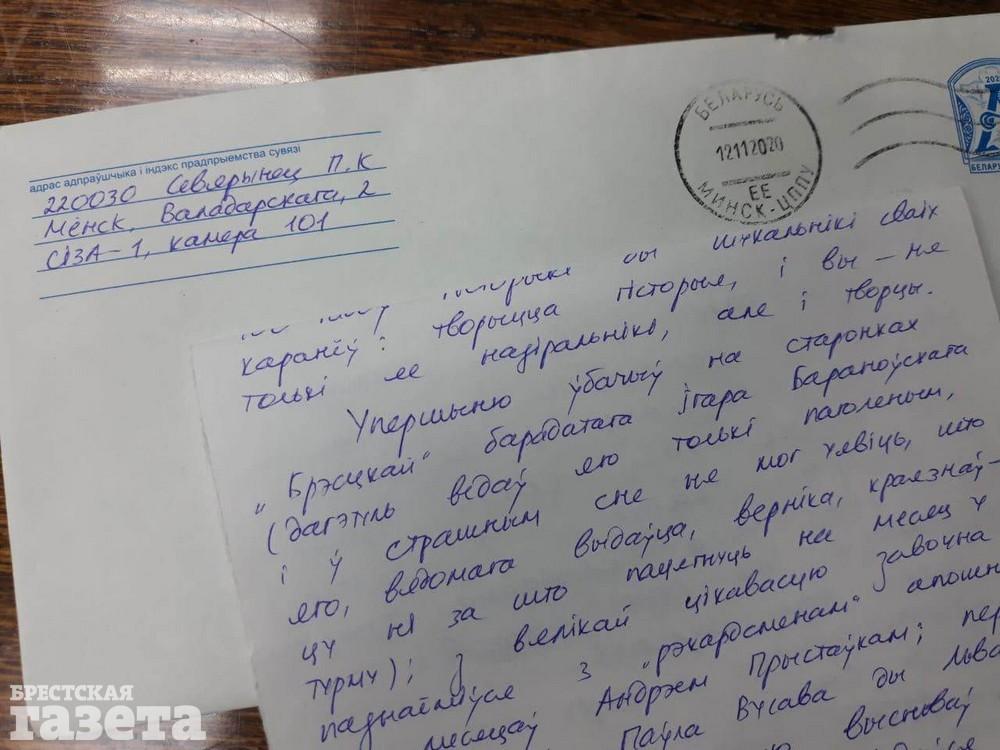 адрас адпраўшчыка і індэкс прадпрыемства сувязі
220030 Севярынец П.К
Менск, Валадарскага, 2
СІЗА-1, камера 101
БЕЛАРУСЬ
12112020
ЕЕ
МИНСК-ЦППУ
БЕЛАРУ
шукальнікі сваіх
каранёў: творыцца гісторыя, і вы – не
толькі яе назіральнікі, але і творцы.
Упершыню ўбачыў на старонках
„Брэсцкай" барадатага Ігара Бараноўскага
(дагэтуль ведаў яго толькі паголеным,
і ў страшным сне не мог уявіць, што
яго, вядомага выдаўца, верніка, краязнаў–
цу ні за што пацягнуць на месяц у
турму); З вялікай цікавасцю завочна
пазнаёміўся з „рэкардсменам" апошн
месяцаў Андрэем Прыстаўкам; пер
Паўла Вусава ды Льва
высноваў
БРЕСТСКАЯ
газета